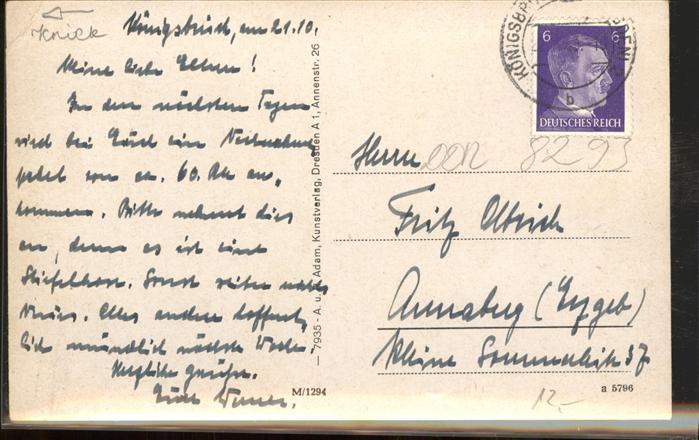 Knick
Königsbrück, am 21.10.
Meine liebe Eltern!
In den nächsten Tagen
wird bei Euch ein Nachnahme
paket von ca. 60. RM an,
kommen. Bitte nehmt dies
an, denn es ist eine
Stiefelhose. Sonst weiter nichts
Neues. Alles andere hoffent,
lich mündlich nächste Woche.
Herzliche Grüße.
Euer Werner.
— 7935 - A. u. R. Adam, Kunstverlag, Dresden A 1, Annenstr. 26
M/1294
KÖNIGSBRÜCK
b
6 6
DEUTSCHES REICH
Herrn
8293
Fritz
Annaberg (Erzgeb)
Kleine Sommerleite 37
a 5796
12.-